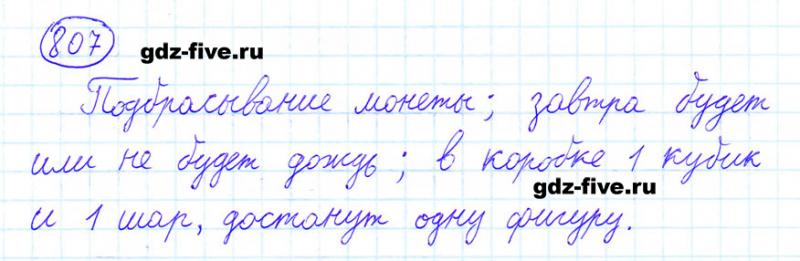 807
gdz-five.ru
Подбрасывание монеты; завтра будет
или не будет дождь; в коробке 1 кубик
gdz-five.ru
и 1 шар, достанут одну фигуру.